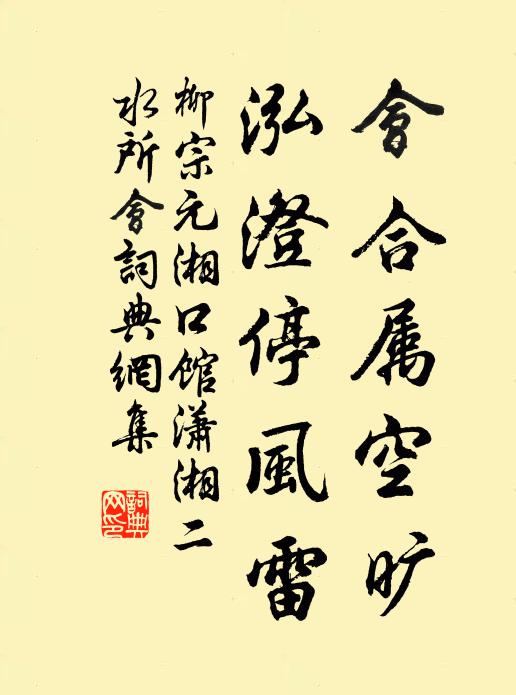 會合属空旷
泓澄停風雷
柳宗元湘口館瀟湘二
水所會詞典網集
詞典
网印